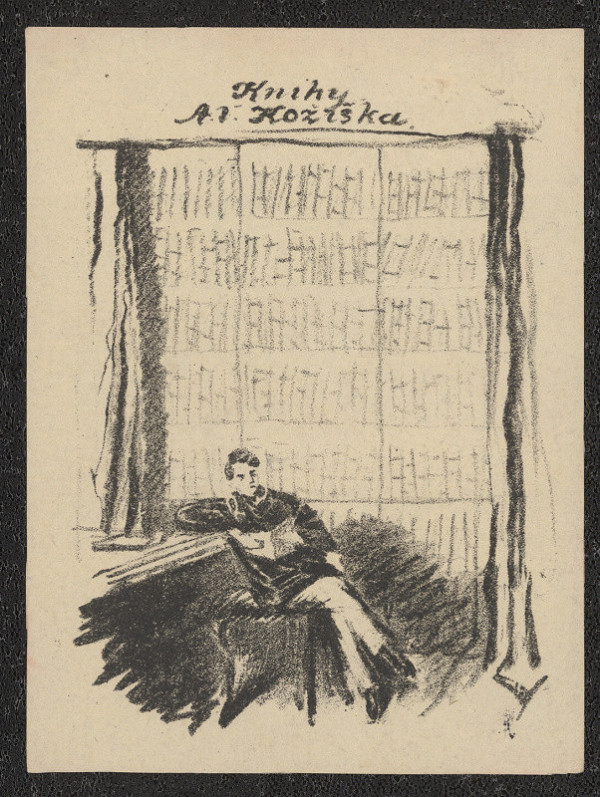 Knihy
Al. Kožíška.